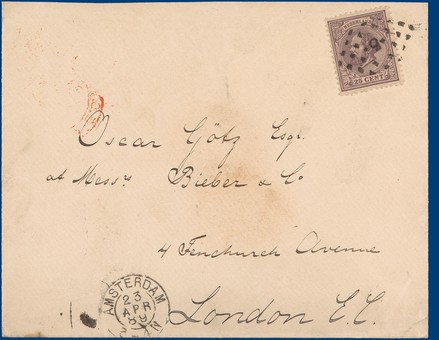 25 CENT
Oscar Götz Esqr.
at Messrs Bieber & Co
4 Fenchurch Avenue
London E.C.
AMSTERDAM
23
APR
89